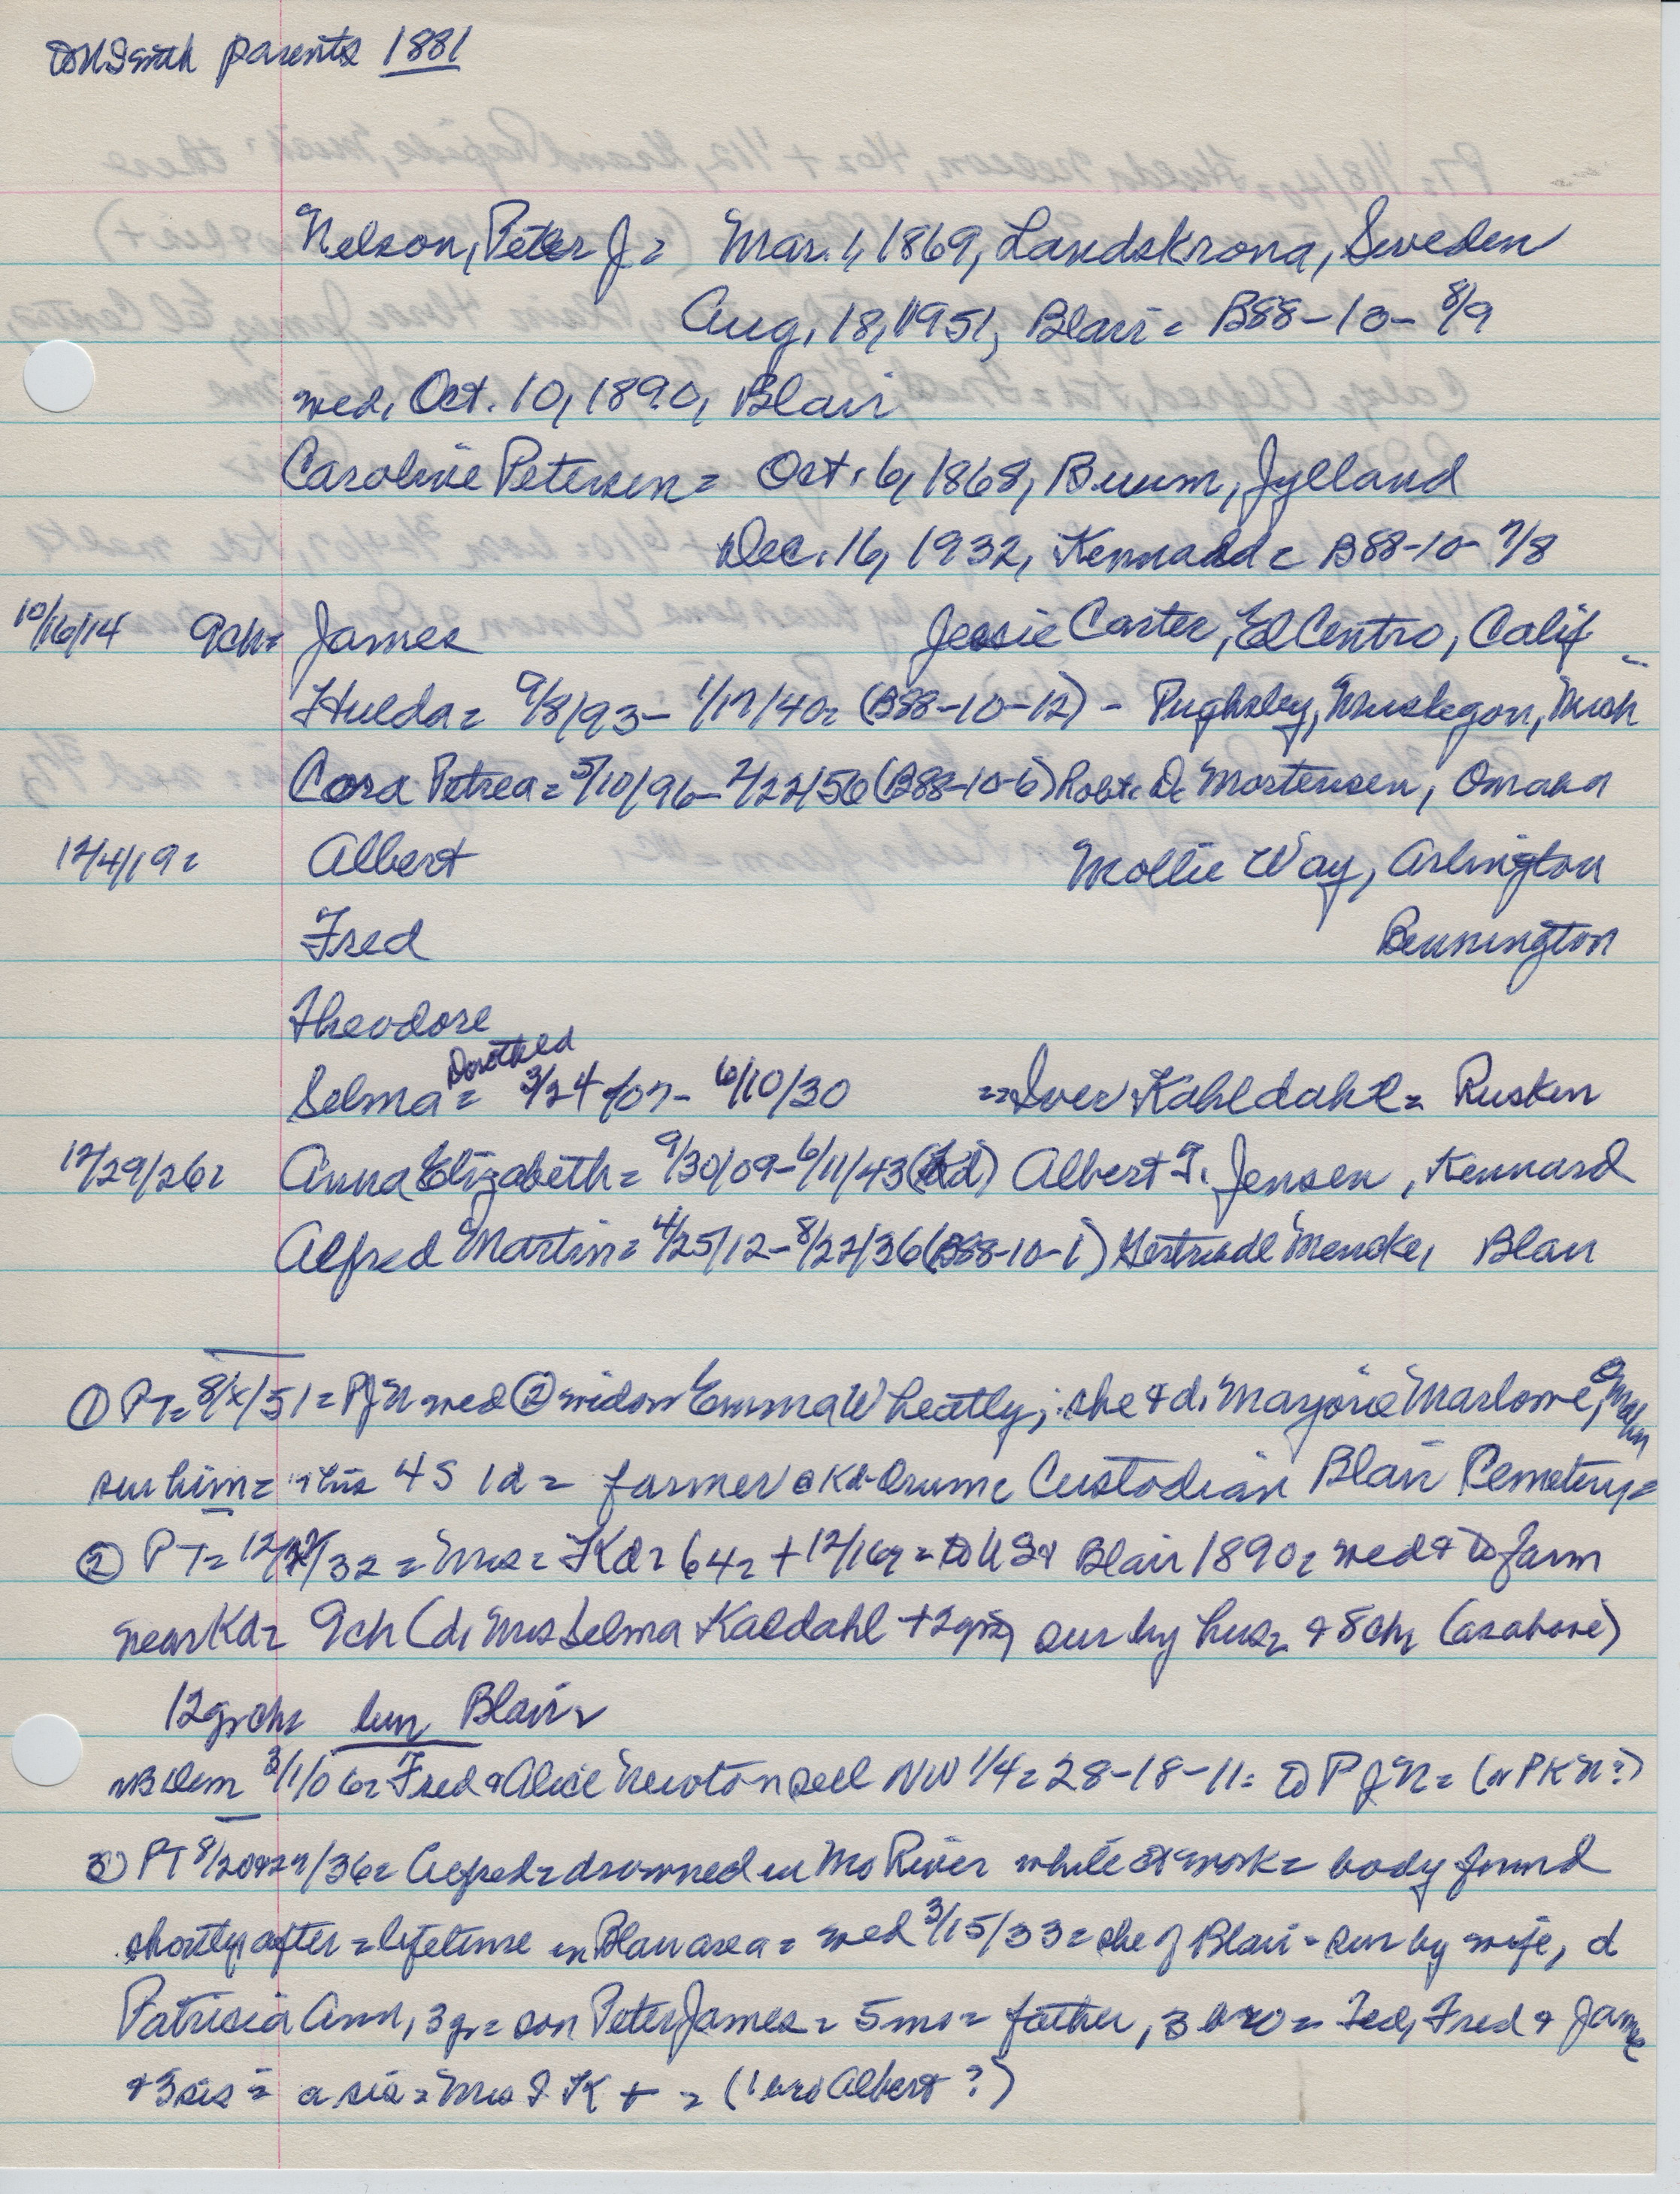 to US with parents 1881
Nelson, Peter J = Mar. 1, 1869, Landskrona, Sweden
Aug. 18, 1951, Blair = B88-10-8/9
wed. Oct. 10, 1890, Blair
Caroline Petersen = Oct. 6, 1868, Buum, Jylland
Dec. 16, 1932, Kennard = B88-10-7/8
10/16/14 9ch = James Jessie Carter, El Centro, Calif
Hulda = 9/8/93 - 1/17/40 = (B88-10-12) - Pughsley, Muskegon, Mich
Cora Petrea = 5/10/96 - 2/22/56 (B88-10-6) Robt. D. Mortensen, Omaha
12/4/19 = Albert Mollie Way, Arlington
Fred Bennington
Theodore
Dorothea
Selma = 3/24/07 - 6/10/30 == Iver Kahldahl = Ruskin
12/29/26 = Anna Elizabeth = 9/30/09 - 6/11/43 (Kd) Albert T. Jensen, Kennard
Alfred Martin = 4/25/12 - 8/22/36 (B88-10-1) Gertrude Mencke, Blair
① PT = 8/x/51 = PJN wed ② widow Emma Wheatly; she & d. Marjorie Marlowe, Omaha
sur him = 4S 1d = farmer Kd - Custodian Blair Cemetery =
② PT = 12/ /32 = Mrs = Kd = 64 = + 12/16 = to US & Blair 1890 = wed & to farm
near Kd = 9ch (d. Mrs Selma Kaldahl + 2 ) sur by hus = & 8ch (as above)
12grch bur Blair
3/1/06 = Fred & Alice Newton sell NW 1/4 = 28-18-11 = to PJN = (or PKN?)
③ PT 8/20&27/36 = Alfred = drowned in Mo River while at work = body found
shortly after = lifetime in Blair area = wed 3/15/33 = she of Blair - sur by wife, d
Patricia Ann, 3 yr = son Peter James = 5 mo = father, 3 bro = Ted, Fred & James
& 3 sis = a sis = Mrs I K + = (1 bro Albert?)